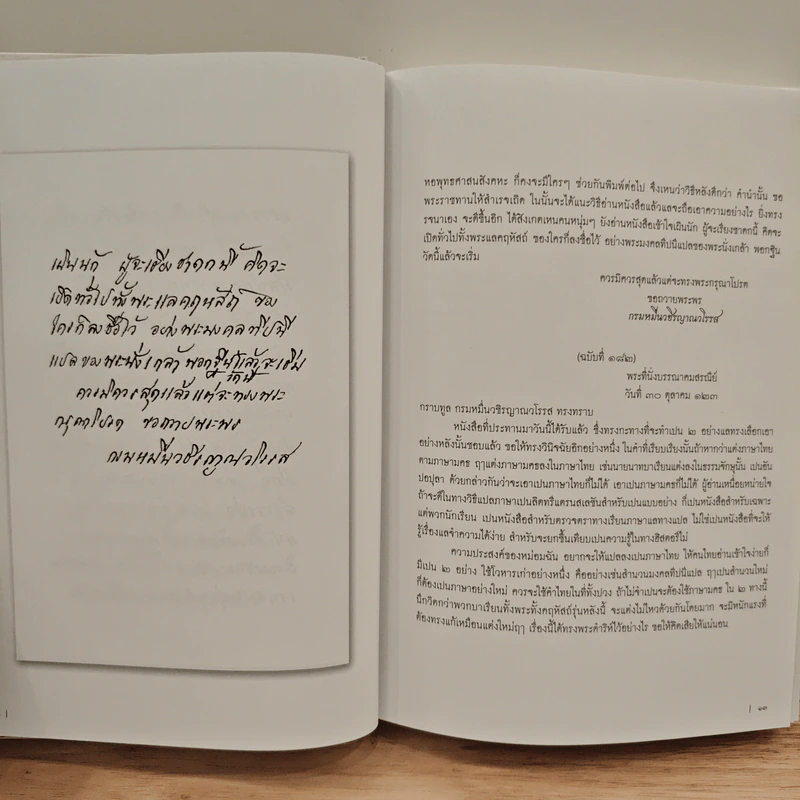 เผินนัก ผู้จะเรียงชาดกนี้ คิดจะ
เปิดทั่วไปทั้งพระแลคฤหัสถ์ ของ
ใครก็ลงชื่อไว้ อย่างพระมงคลทีปนี
แปลของพระนั่งเกล้า พอกฐินแล้วจะเริ่ม
วัดนี้
ควรมิควรสุดแล้วแต่จะทรงพระ
กรุณาโปรด ขอถวายพระพร
กรมหมื่นวชิรญาณวโรรส
หอพุทธศาสนสังคหะ ก็คงจะมีใครๆ ช่วยกันพิมพ์ต่อไป จึงเหนว่าวิธีหลังดีกว่า คำนำนั้น ขอ
พระราชทานให้สำเรจเถิด ในนั้นจะได้แนะวิธีอ่านหนังสือแล้วแลจะถือเอาความอย่างไร ยิ่งทรง
รจนาเอง จะดีขึ้นอิก ได้สังเกตเหนคนหนุ่มๆ ยังอ่านหนังสือเข้าใจเผินนัก ผู้จะเรียงชาดกนี้ คิดจะ
เปิดทั่วไปทั้งพระแลคฤหัสถ์ ของใครก็ลงชื่อไว้ อย่างพระมงคลทีปนีแปลของพระนั่งเกล้า พอกฐิน
วัดนี้แล้วจะเริ่ม
ควรมิควรสุดแล้วแต่จะทรงพระกรุณาโปรด
ขอถวายพระพร
กรมหมื่นวชิรญาณวโรรส
(ฉบับที่ ๑๘๒)
พระที่นั่งบรรณาคมสรณีย์
วันที่ ๓๐ ตุลาคม ๑๒๓
กราบทูล กรมหมื่นวชิรญาณวโรรส ทรงทราบ
หนังสือที่ประทานมาวันนี้ได้รับแล้ว ซึ่งทรงกะทางที่จะทำเปน ๒ อย่างแลทรงเลือกเอา
อย่างหลังนั้นชอบแล้ว ขอให้ทรงวินิจฉัยอิกอย่างหนึ่ง ในคำที่เรียบเรียงนั้นถ้าหากว่าแต่งภาษาไทย
ตามภาษามคธ ฤๅแต่งภาษามคธลงในภาษาไทย เช่นนายนาทบาเรียนแต่งลงในธรรมจักษุนั้น เปนอัน
ปอปุลา ด้วยกล่าวกันว่าจะเอาเปนภาษาไทยก็ไม่ได้ เอาเปนภาษามคธก็ไม่ได้ ผู้อ่านเหนื่อยหน่ายใจ
ถ้าจะดีในทางวิธีแปลภาษาเปนลิตทรีแตรนสเลชันสำหรับเปนแบบอย่าง ก็เปนหนังสือสำหรับเฉพาะ
แต่พวกนักเรียน เปนหนังสือสำหรับตรวจตราทางเรียนภาษาแลทางแปล ไม่ใช่เปนหนังสือที่จะให้
รู้เรื่องแลจำความได้ง่าย สำหรับจะยกขึ้นเทียบเปนความรู้ในทางฮิสตอรีไม่
ความประสงค์ของหม่อมฉัน อยากจะให้แปลลงเปนภาษาไทย ให้คนไทยอ่านเข้าใจง่ายก็
มีเปน ๒ อย่าง ใช้โวหารเก่าอย่างหนึ่ง คืออย่างเช่นสำนวนมงคลทีปนีแปล ฤๅเปนสำนวนใหม่
ก็ต้องเปนภาษาอย่างใหม่ ควรจะใช้คำไทยในที่ทั้งปวง ถ้าไม่จำเปนจะต้องใช้ภาษามคธ ใน ๒ ทางนี้
นึกวิตกว่าพวกบาเรียนทั้งพระทั้งคฤหัสถ์รุ่นหลังนี้ จะแต่งไม่ไหวด้วยกันโดยมาก จะมีหนักแรงที่
ต้องทรงแก้เหมือนแต่งใหม่ฤๅ เรื่องนี้ได้ทรงพระดำริห์ไว้อย่างไร ขอให้คิดเสียให้แน่นอน
| ๑๓